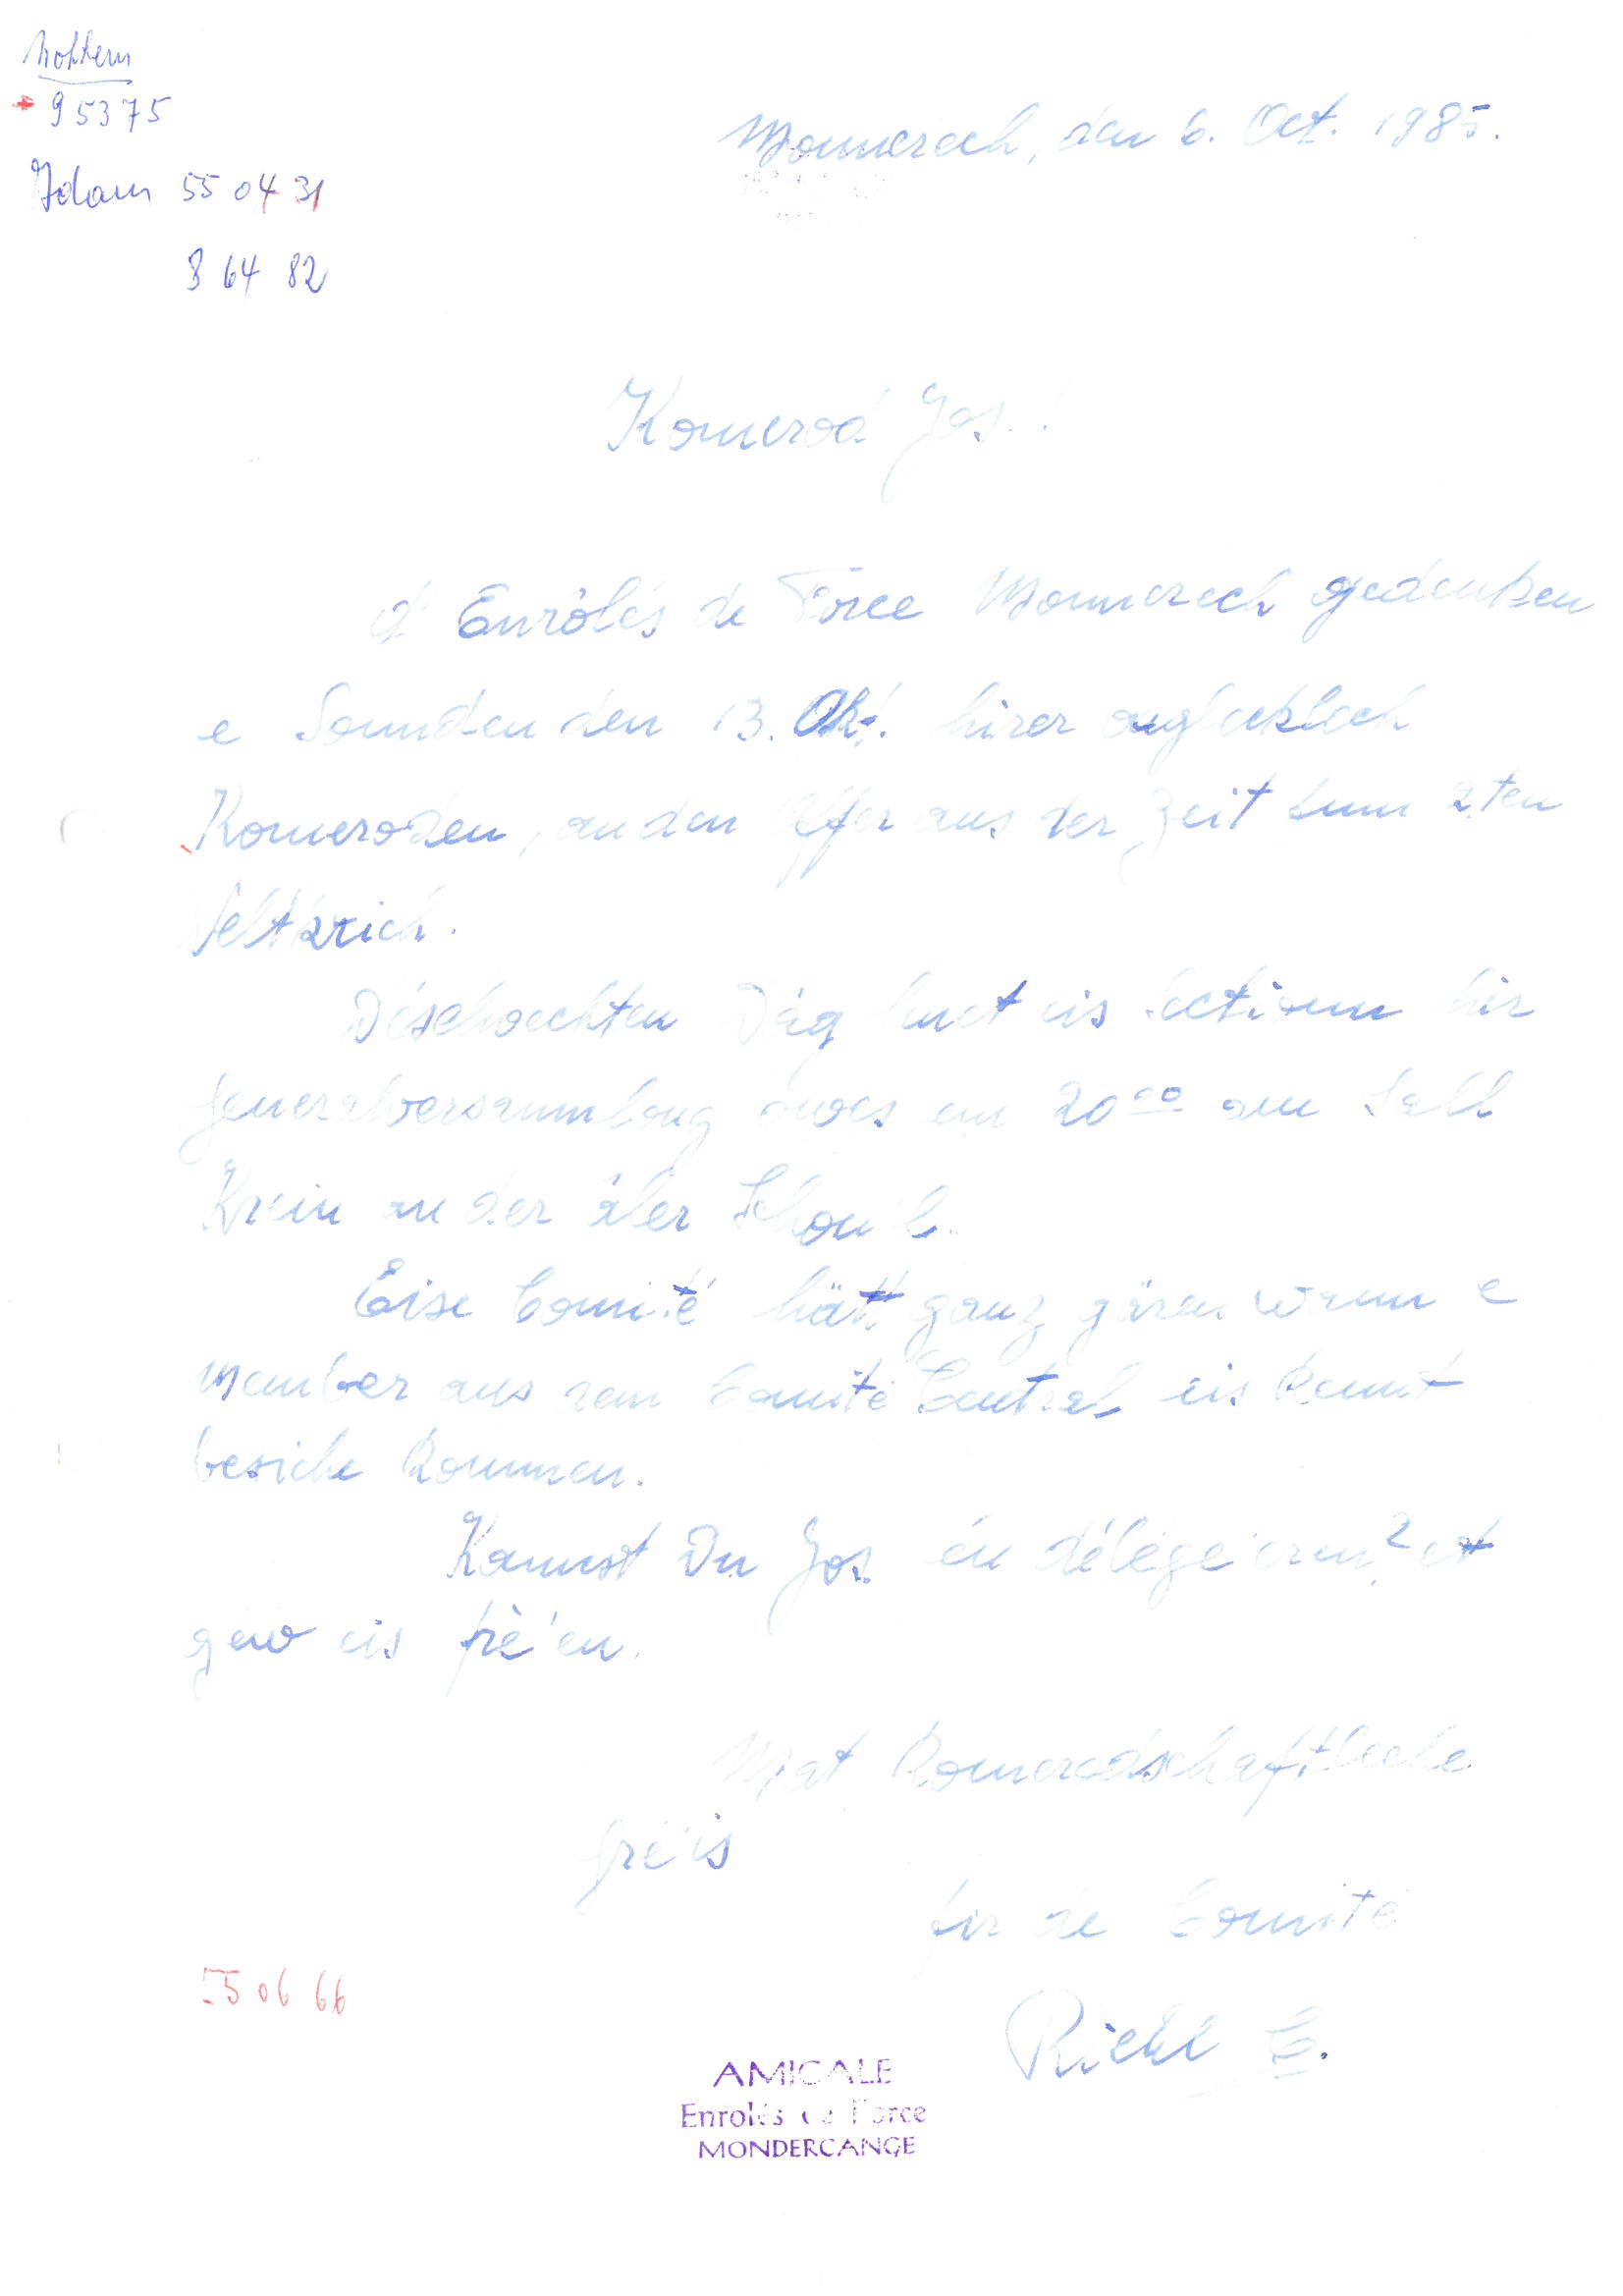 95375
Adam 55 04 31
8 64 82
Monnerech, den 6. Oct. 1985.
Komerod Jos.!
d'Enrôlés de Force Monnerech gedenken
e Sonnden den 13. Okt. hirer onglecklech
Komeroden, an den Affer aus der Zeit vum 2ten
Weltkrich.
Déselwechten Dág huet eis Sectioun hir
Generalversammlong owes um 20 00 am Sall
Krein an der áler Schoul.
Eise Comité hätt ganz gären wann e
Member aus dem Comité Central eis kennt
besiche kommen.
Kannst Du Jos. én délégéeren? et
géw eis fréen.
Mat Komeradschaftleche
Gréiss
fir de Comité
Riehl C.
55 06 66
AMICALE
Enrolés de Force
MONDERCANGE